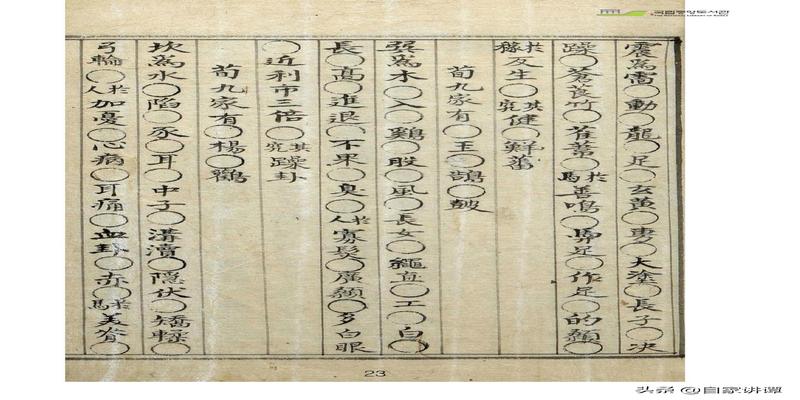 震爲雷○動○龍○足○玄黃○旉○大塗○長子○决
躁○蒼莨竹○萑葦○於馬善鳴○馵足○作足○的顙○
於稼反生○其究健○鮮蕃
荀九家有○王○鵠○皷
巽爲木○入○鷄○股○風○長女○繩直○工○白○
長○高○進退○不果○臭○於人寡髮○廣顙○多白眼
○近利市三倍○其究躁卦
荀九家有○楊○鸛
坎爲水○陷○豕○耳○中子○溝瀆○隱伏○矯輮○
弓輪○於人加憂○心病○耳痛○血卦○赤○於馬美脊○
23
头条 @自家讲谭